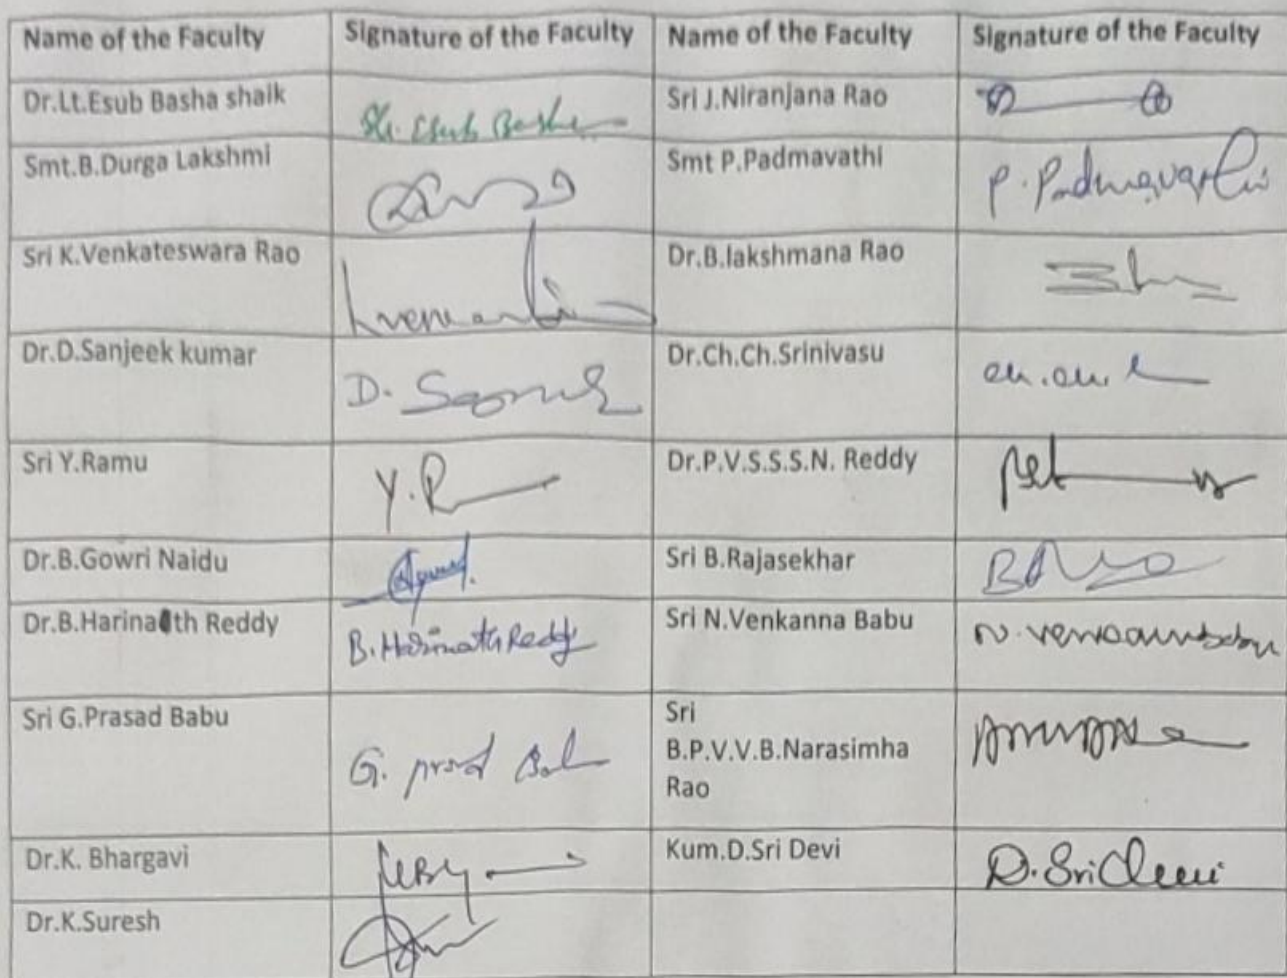 Name of the Faculty Signature of the Faculty Name of the Faculty Signature of the Faculty
Dr.Lt.Esub Basha shaik Sk. Esub Basha Sri J.Niranjana Rao
Smt.B.Durga Lakshmi Smt P.Padmavathi P. Padmavathi
Sri K.Venkateswara Rao Dr.B.lakshmana Rao
Dr.D.Sanjeek kumar D. Dr.Ch.Ch.Srinivasu
Sri Y.Ramu Y.R Dr.P.V.S.S.S.N. Reddy
Dr.B.Gowri Naidu Sri B.Rajasekhar
Dr.B.Harinath Reddy B.Harinath Reddy Sri N.Venkanna Babu N.
Sri G.Prasad Babu G. Sri
B.P.V.V.B.Narasimha
Rao
Dr.K. Bhargavi Kum.D.Sri Devi D.Sri Devi
Dr.K.Suresh